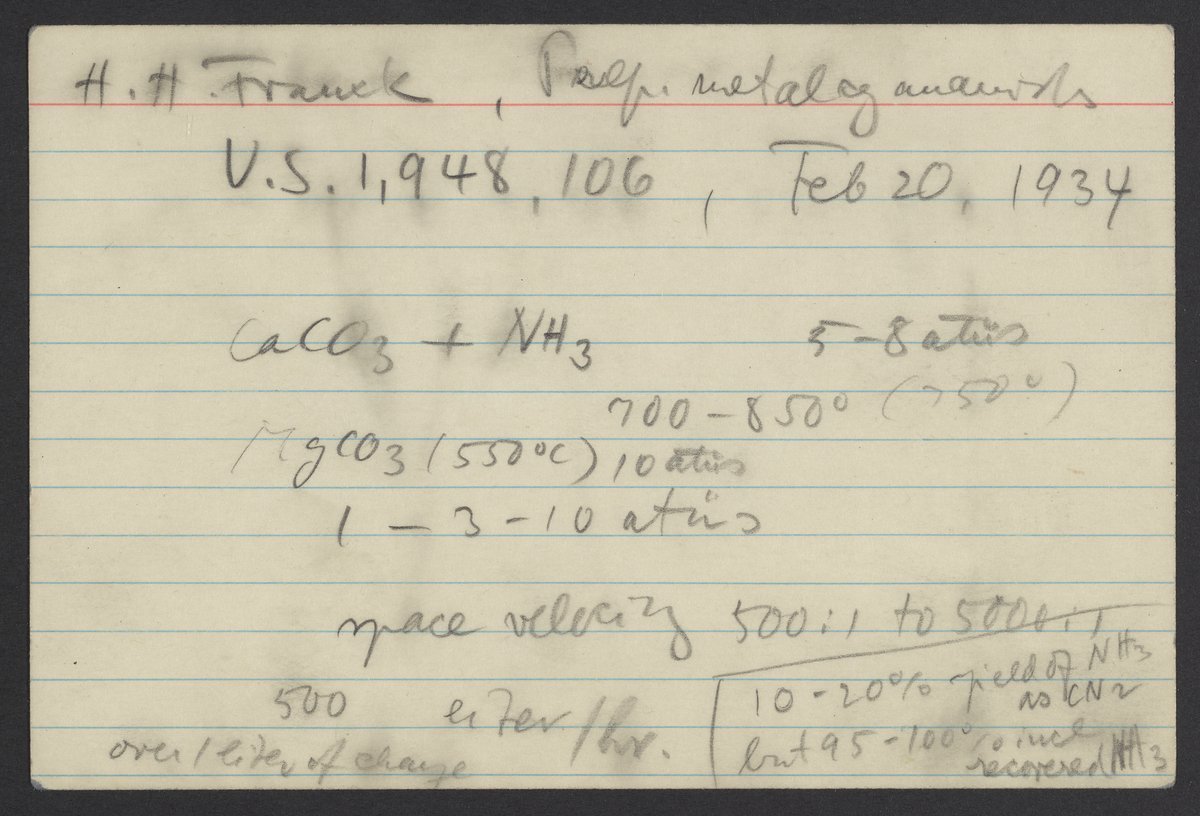 H. H. Franck, Prep. metal cyanamids
U.S. 1,948,106, Feb 20, 1934
CaCO3 + NH3 5-8 atüs
700-850° (750°)
MgCO3 (550°C) 10 atüs
1 - 3 - 10 atüs
space velocity 500:1 to 5000:1
500 liter/hr.
over 1 liter of charge
10-20% yield of NH3
as CN2
but 95-100% incl
recovered NH3